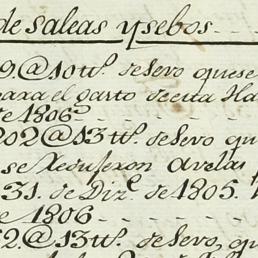 de saleas y sebos
9,@10 tt.s de sevo q.e se
para el gasto de esta Ha
de 1806
202@13 tt.s de sevo, qu
se Reduseron a velas
31. de Diz.e de 1805.
de 1806
2.@13 tt.s de sevo, q